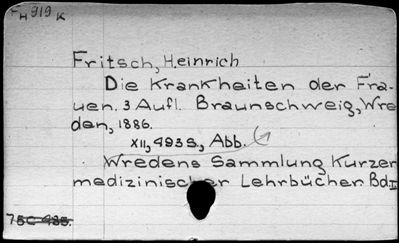 FH 919 K
Fritsch, Heinrich
Die Krankheiten der Fra-
uen. 3 Aufl. Braunschweig, Wre
den, 1886.
XII, 493 S, Abb.
Wredens Sammlung Kurzer
medizinischer Lehrbücher. Bd. II
75C 935.